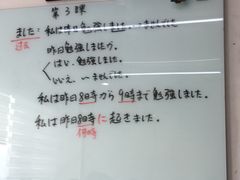 第3課
ました: 私は昨日勉強しました。
過去
昨日勉強しましたか。
はい、勉強しました。
いいえ、〜ませんでした。
私は昨日8時から9時まで勉強しました。
私は昨日8時に起きました。
何時